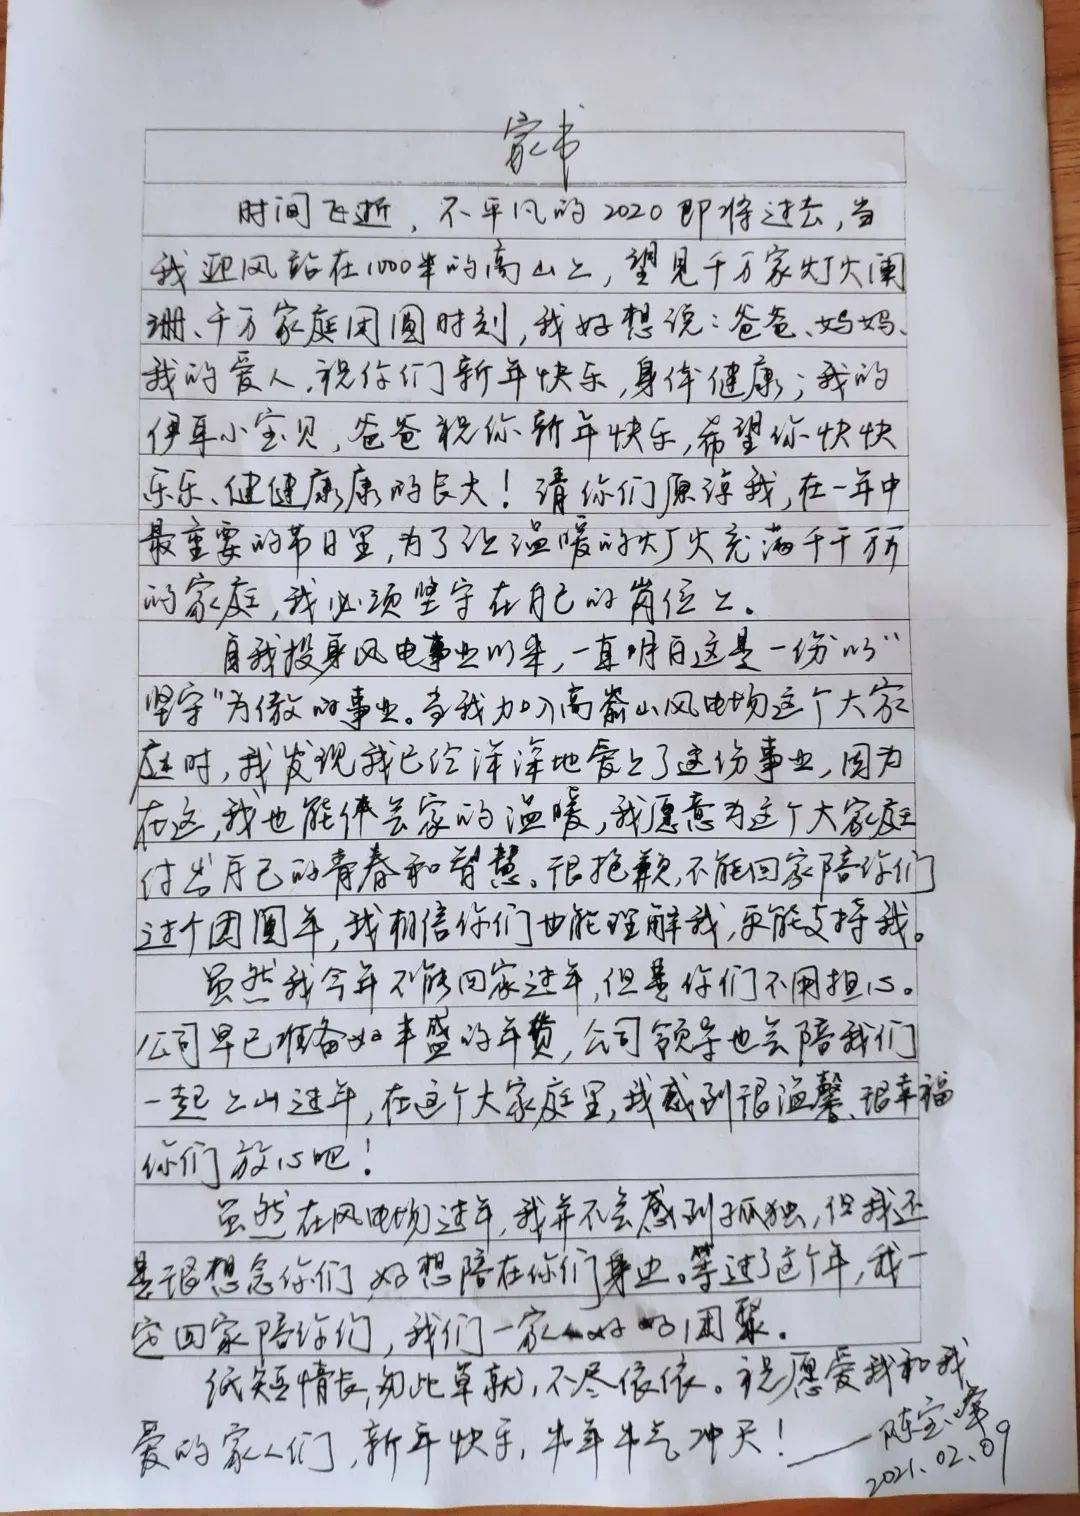 家书
时间飞逝，不平凡的2020即将过去，当
我迎风站在1000米的高山上，望见千万家灯火阑
珊、千万家庭团圆时刻，我好想说：爸爸、妈妈、
我的爱人，祝你们新年快乐，身体健康；我的
伊耳小宝贝，爸爸祝你新年快乐，希望你快快
乐乐、健健康康的长大！请你们原谅我，在一年中
最重要的节日里，为了让温暖的灯火充满千千万万
的家庭，我必须坚守在自己的岗位上。
自我投身风电事业以来，一直明白这是一份以“
坚守”为傲的事业。当我加入高嵛山风电场这个大家
庭时，我发现我已经深深地爱上了这份事业，因为
在这，我也能体会家的温暖，我愿意为这个大家庭
付出自己的青春和智慧。很抱歉，不能回家陪你们
过个团圆年，我相信你们也能理解我，更能支持我。
虽然我今年不能回家过年，但是你们不用担心。
公司早已准备好丰盛的年货，公司领导也会陪我们
一起上山过年，在这个大家庭里，我感到很温馨、很幸福
你们放心吧！
虽然在风电场过年，我并不会感到孤独，但我还
是很想念你们，好想陪在你们身边。等过了这个年，我一
定回家陪你们，我们一家人好好团聚。
纸短情长，匆此草就，不尽依依。祝愿爱我和我
爱的家人们，新年快乐，牛年牛气冲天！——陈宝峰
2021.02.09